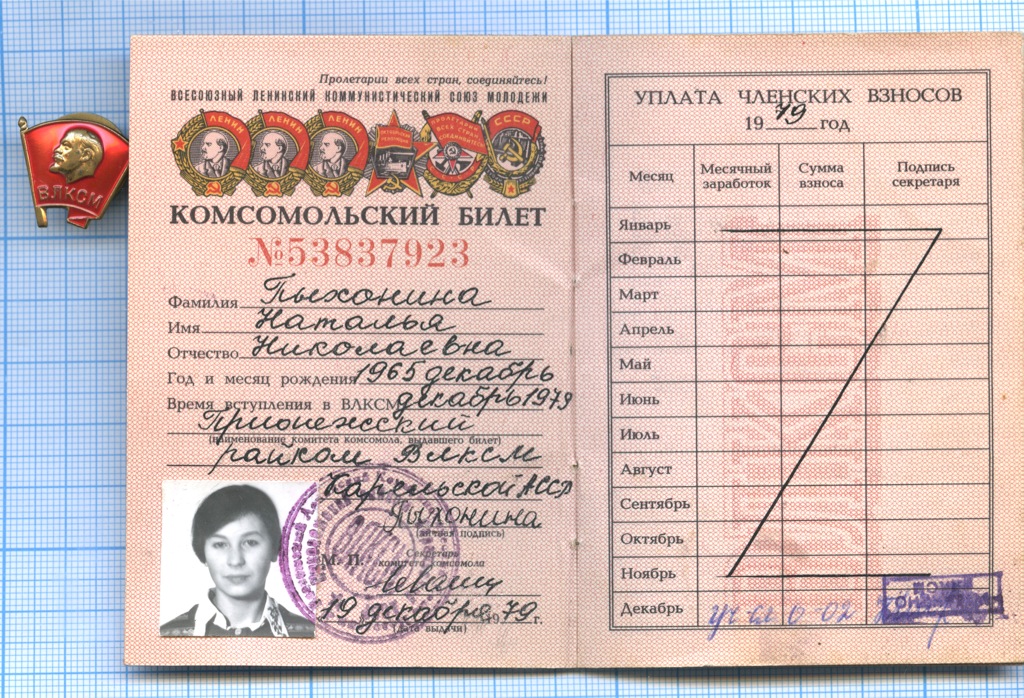 ВЛКСМ
Пролетарии всех стран, соединяйтесь!
ВСЕСОЮЗНЫЙ ЛЕНИНСКИЙ КОММУНИСТИЧЕСКИЙ СОЮЗ МОЛОДЕЖИ
ЛЕНИН ЛЕНИН ЛЕНИН СССР
КОМСОМОЛЬСКИЙ БИЛЕТ
№53837923
Фамилия Пыхонина
Имя Наталья
Отчество Николаевна
Год и месяц рождения 1965 декабрь
Время вступления в ВЛКСМ декабрь 1979
Прионежский
(наименование комитета комсомола, выдавшего билет)
райком Влксм
Карельской АССР
Пыхонина
(личная подпись)
М. П.
Секретарь
комитета комсомола
19 декабря 1979 г.
(дата выдачи)
УПЛАТА ЧЛЕНСКИХ ВЗНОСОВ
1979 год
Месяц Месячный заработок Сумма взноса Подпись секретаря
Январь
Февраль
Март
Апрель
Май
Июнь
Июль
Август
Сентябрь
Октябрь
Ноябрь
Декабрь уч-ся 0-02